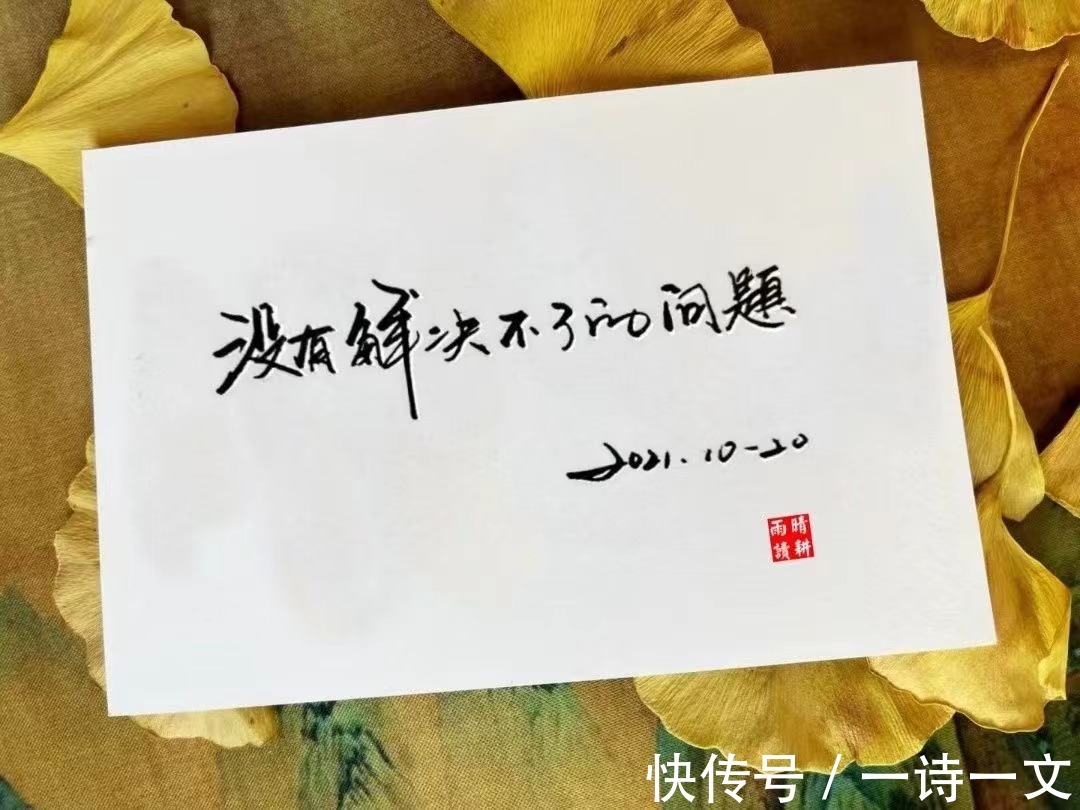 没有解决不了的问题
2021.10-20
晴耕
雨读
快传号 / 一诗一文